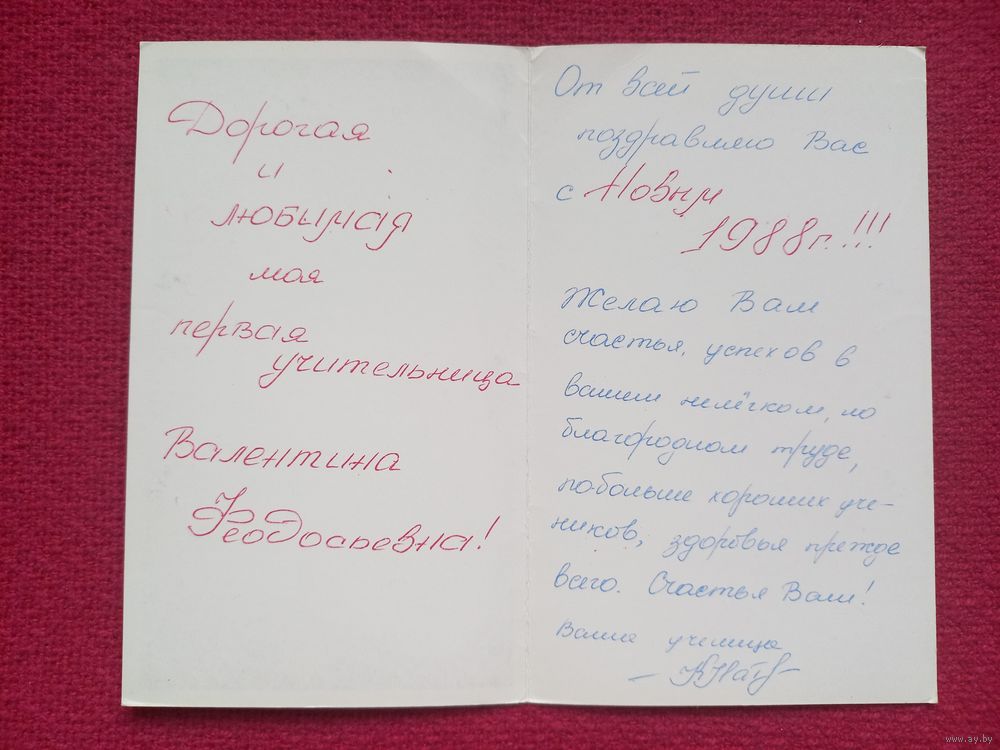 Дорогая
и
любимая
моя
первая
учительница
Валентина
Феодосьевна!
От всей души
поздравляю Вас
с Новым
1988г.!!!
Желаю Вам
счастья, успехов в
вашем нелёгком, но
благородном труде,
по-больше хороших уче-
ников, здоровья прежде
всего. Счастья Вам!
Ваша ученица
www.ay.by